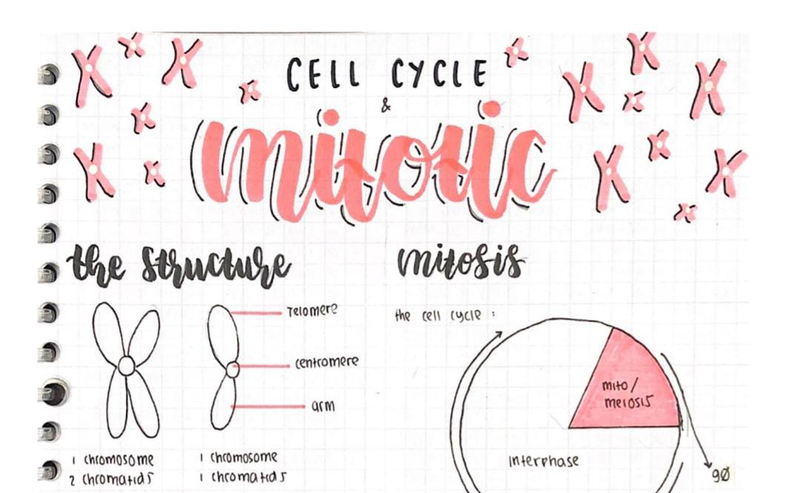 CELL CYCLE
&
mitotic
the structure
mitosis
Telomere
centromere
arm
1 chromosome
2 chromatids
1 chromosome
1 chromatids
the cell cycle :
mito/
meiosis
Interphase
90